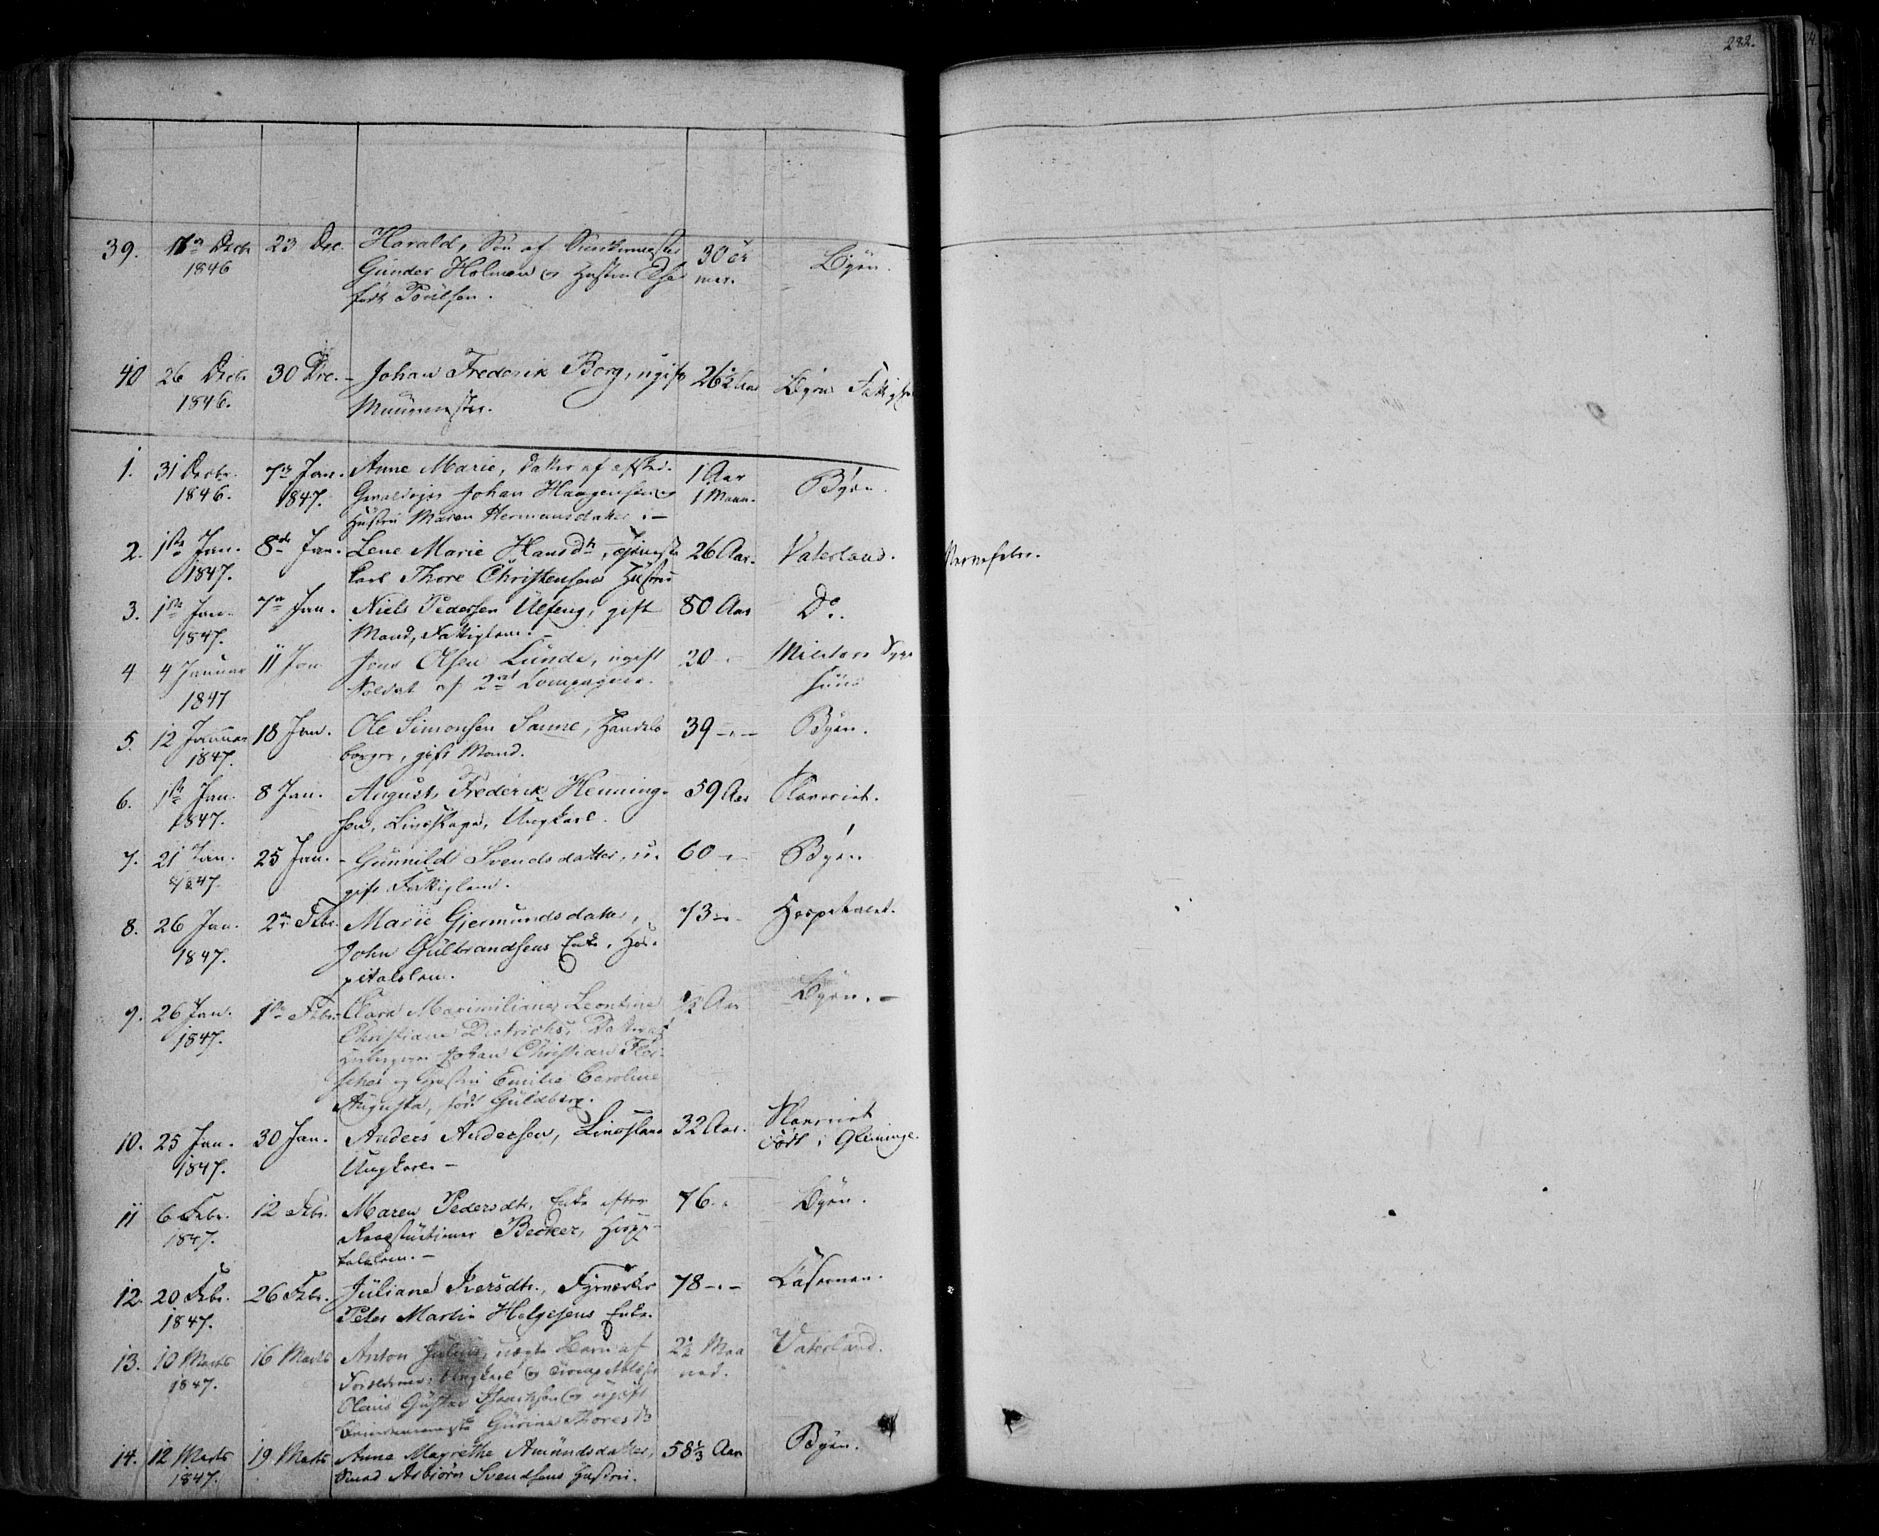 282.
39. 17de Decbr 23 Dec. Harald, Søn af
1846 Gunder Holmen og Hustru
født Poulsen.
Byen.
40 26 Decbr 30 Dec. Johan Frederik Borg, ugift 26½ Aar Byens
1846. Muurmester.
1. 31 Decbr. 7de Jan. Anne Marie, Datter af 1 Aar
1846. 1847. Johan Haagensen og 1 Maan. Byen.
Hustru Maren Hermansdatter.
2. 1ste Jan. 8de Jan. Lene Marie Hansdtr, 26 Aar. Vaterland. Nervefeber.
1847. karl Thore Christensens Hustru
3. 1ste Jan. 7de Jan. Niels Pedersen Ulfeng, gift 80 Aar Do.
1847. Mand, Fattiglem.
4 4 Januar 11 Jan Jens Olsen Lunde, ugift 20 Militære Syge
1847 Soldat af 2det Compagnie. huus
5. 12 Januar 18 Jan. Ole Simonsen Sanne, Handels 39 Byen.
1847. borger, gift Mand.
6. 1ste Jan. 8 Jan. August Frederik Henning- 59 Aar Slaveriet.
1847. sen, Livsslave, Ungkarl.
7. 21 Jan. 25 Jan. Gunnild Svendsdatter, u. 60 Byen
1847. gift Fattiglem.
8. 26 Jan. 2den Febr. Marie Gjermundsdatter, 73 Hospitalet.
1847. John Gulbrandsens Enke, Hos-
pitalslem.
9. 26 Jan. 1ste Febr. Clara Maximiliane Leontine ½ Aar Byen.
1847. Christiane Dietrichs, Datter af
Johan Christian
og Hustru Emilie Caroline
Augusta, født Guldberg.
10. 25 Jan. 30 Jan. Anders Andersen, Livsslave 32 Aar. Slaveriet
1847. Ungkarl. født i Glemminge.
11 6 Febr. 12 Febr. Maren Pedersdtr, Enke efter 76 Byen.
1847. Becker, Hospi-
talslem.
12. 20 Febr. 26 Febr. Juliane Iversdtr., Fyrværker 78 Casernen.
1847. Peter Martin Helgesens Enke.
13. 10 Marts 16 Marts Anton Julius, uægte Barn af 2½ Maa Vaterland.
1847. Ungkarl og ned.
Olaus Gustav og ugift
Gurine Thoresdtr
14. 12 Marts 19 Marts Anna Magrethe Amundsdatter, 58⅓ Aar Byen.
1847. Smed Asbiørn Svendsens Hustru.